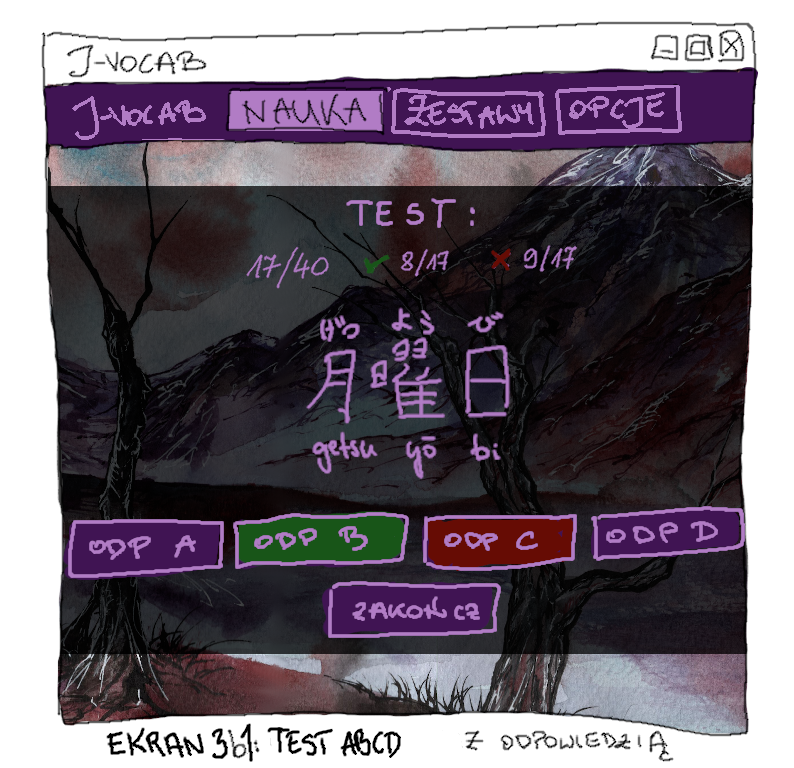 J-VOCAB
J-VOCAB NAUKA ZESTAWY OPCJE
TEST:
17/40 ✓ 8/17 ✗ 9/17
げつ よう び
月曜日
getsu yō bi
ODP A ODP B ODP C ODP D
ZAKOŃCZ
EKRAN 3b1: TEST ABCD Z ODPOWIEDZIĄ